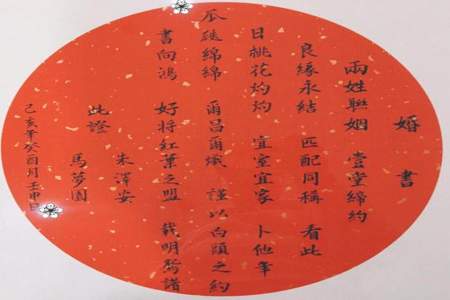 婚書
兩姓聯姻 壹堂締約
良緣永結 匹配同稱 看此
日桃花灼灼 宜室宜家 卜他年
瓜瓞綿綿 爾昌爾熾 謹以白頭之約
書向鴻 好將紅葉之盟 載明鴛譜
此證
朱澤安
馬夢園
己亥年癸酉月壬申日